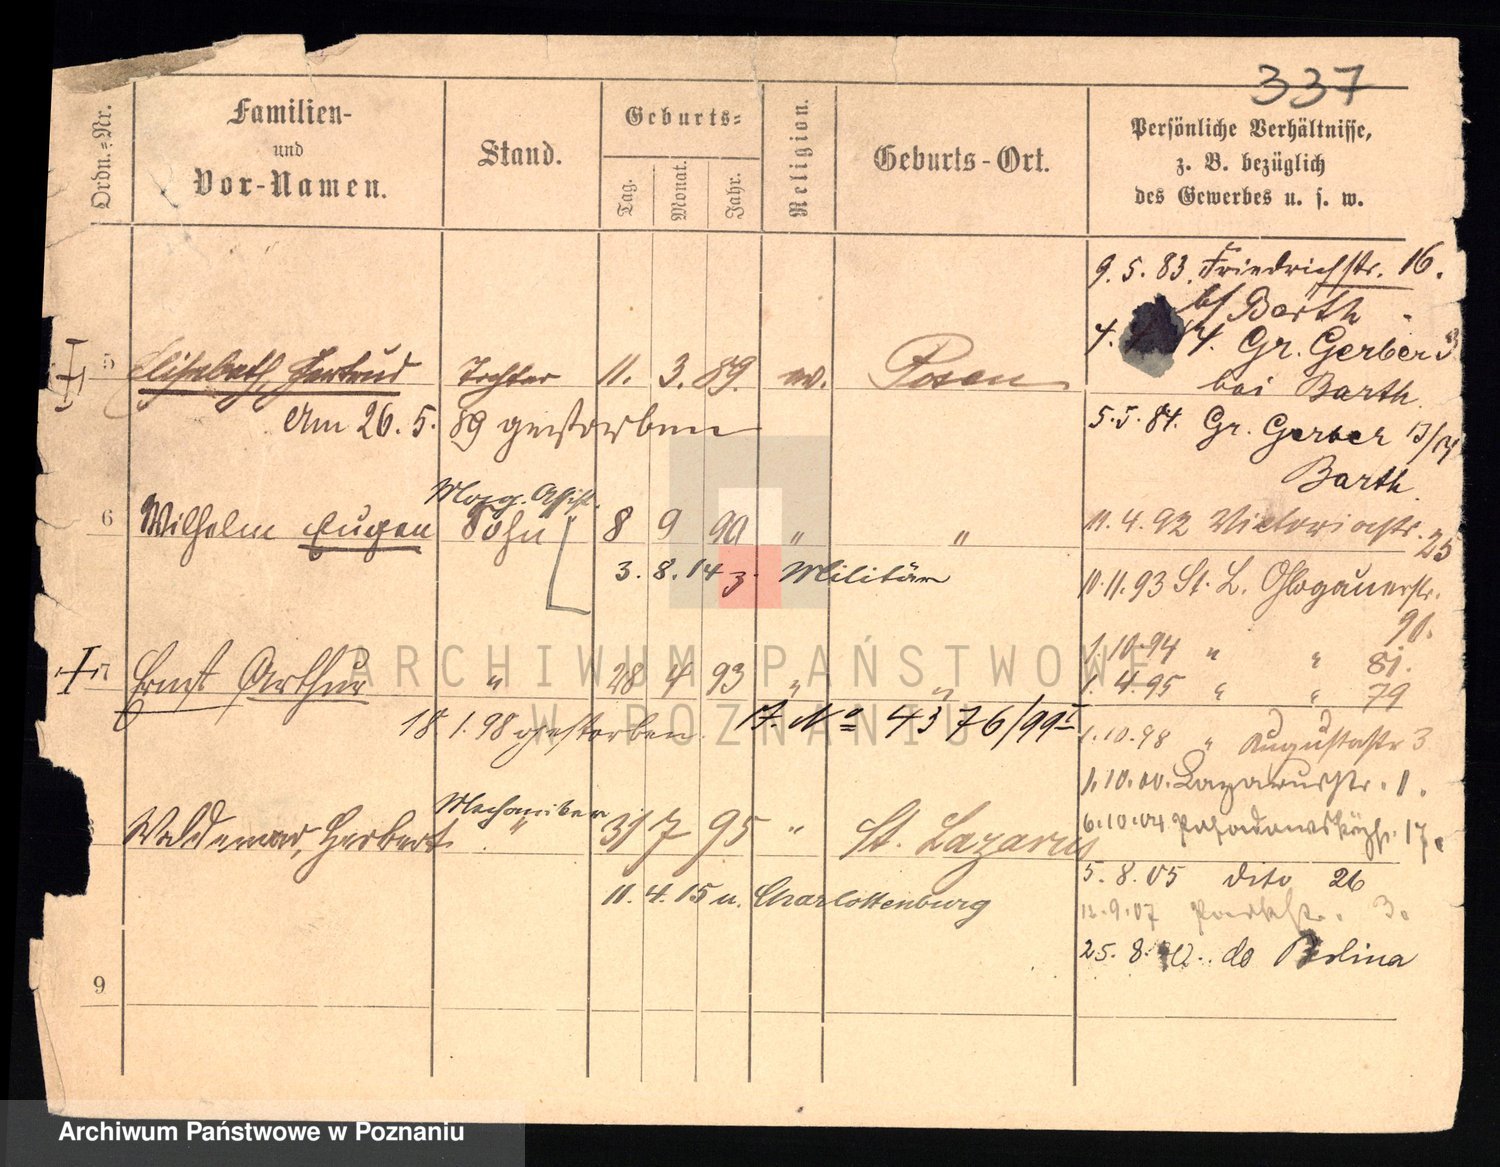 337
Ordn.=Nr.
Familien-
und
Vor-Namen.
Stand.
Geburts=
Tag.
Monat.
Jahr.
Religion.
Geburts-Ort.
Persönliche Verhältnisse,
z. B. bezüglich
des Gewerbes u. s. w.
9. 5. 83. Friedrichstr. 16.
bei Barth
4. Gr. Gerber 3
bei Barth.
5 Elisabeth, Gertrud Tochter 11. 3. 89. ev. Posen
Am 26. 5. 89 gestorben
5. 5. 84. Gr. Gerber 13/14
Barth.
6 Wilhelm Eugen Sohn 8 9 90 " "
3. 8. 14 z. Militär
11. 4. 92 Victoriastr. 25
10. 11. 93 St. L. Glogauerstr.
90.
1. 10. 94 " " 81.
1. 4. 95 " " 79
7 Ernst Arthur " 28 4 93 " "
18 1. 98 gestorben. No 4376/99
1. 10. 98 " Augustastr 3
1. 10. 00. Lazarusstr. 1.
Mechaniker
Waldemar, Herbert " 31 7 95 " St. Lazarus
11. 4. 15 n. Charlottenburg
6. 10. 04 17.
5. 8. 05 dito 26
12. 9. 07 Parkstr. 3.
25. 8. do Berlina
9
ARCHIWUM PAŃSTWOWE
W POZNANIU
Archiwum Państwowe w Poznaniu